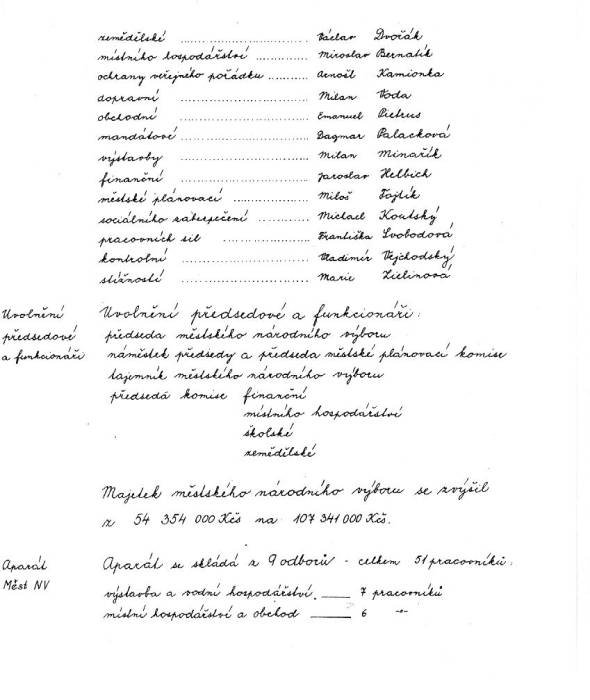 zemědělské ........................ Václav Dvořák
místního hospodářství ............. Miroslav Bernatík
ochrany veřejného pořádku .......... Arnošt Kamionka
dopravní ........................ Milan Voda
obchodní ........................ Emanuel Pietrus
mandátové ........................ Dagmar Palacková
výstavby ........................ Milan Minařík
finanční ........................ Jaroslav Helbich
městské plánovací .................. Miloš Fojtík
sociálního zabezpečení ............. Michael Koutský
pracovních sil .................... Františka Svobodová
kontrolní ........................ Vladimír Vejchodský
stížností ........................ Marie Zielinová
Uvolnění Uvolnění předsedové a funkcionáři:
předsedové předseda městského národního výboru
a funkcionáři náměstek předsedy a předseda městské plánovací komise
tajemník městského národního výboru
předsedá komise finanční
místního hospodářství
školské
zemědělské
Majetek městského národního výboru se zvýšil
z 54 354 000 Kčs na 107 341 000 Kčs.
Aparát Aparát se skládá z 9 odborů - celkem 51 pracovníků:
Měst NV
výstavba a vodní hospodářství. ____ 7 pracovníků
místní hospodářství a obchod ____ 6 -"-